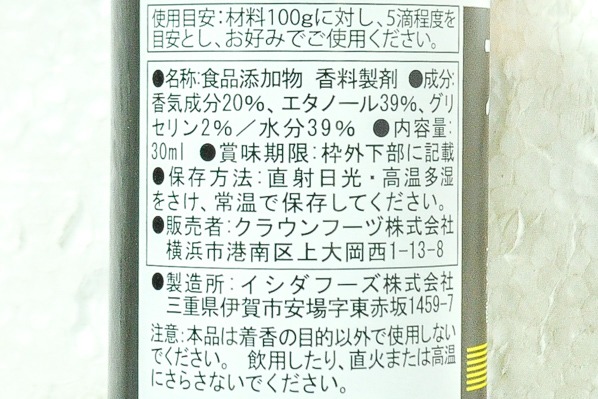 使用目安:材料100gに対し、5滴程度を
目安とし、お好みでご使用ください。
●名称:食品添加物 香料製剤 ●成分:
香気成分20%、エタノール39%、グリ
セリン2%/水分39% ●内容量:
30ml ●賞味期限:枠外下部に記載
●保存方法:直射日光・高温多湿
をさけ、常温で保存してください。
●販売者:クラウンフーヅ株式会社
横浜市港南区上大岡西1-13-8
●製造所:イシダフーズ株式会社
三重県伊賀市安場字東赤坂1459-7
注意:本品は着香の目的以外で使用しない
でください。 飲用したり、直火または高温
にさらさないでください。